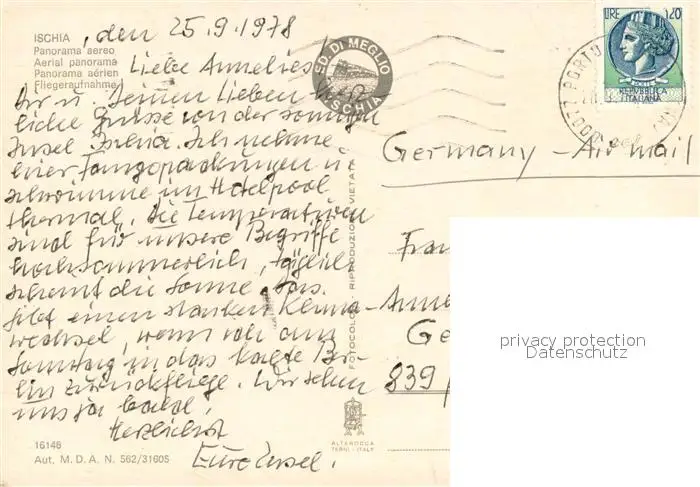 ISCHIA
Panorama aereo
Aerial panorama
Panorama aérien
Fliegeraufnahme
, den 25.9.1978
Liebe Annelies!
Dir u. Deinen Lieben herz-
liche Grüsse von der sonnigen
Insel Ischia. Ich nehme
hier Fangopackungen u.
schwimme im Hotelpool
thermal. Die Temperaturen
sind für unsere Begriffe
hochsommerlich, täglich
scheint die Sonne. Das
gibt einen starken Klima-
wechsel, wenn ich am
Sonntag in das kalte Ber-
lin zurückfliege. Wir sehen
uns ja bald,
Herzlichst
Eure
ED. DI MEGLIO
ISCHIA
LIRE 120
REPUBBLICA
ITALIANA
PORTO
Germany - Air mail
Frau
Anne
Ge
839
privacy protection
Datenschutz
FOTOCOLOR RIPRODUZIONE VIETATA
ALTEROCCA
TERNI - ITALY
16148
Aut. M. D. A. N. 562/31605